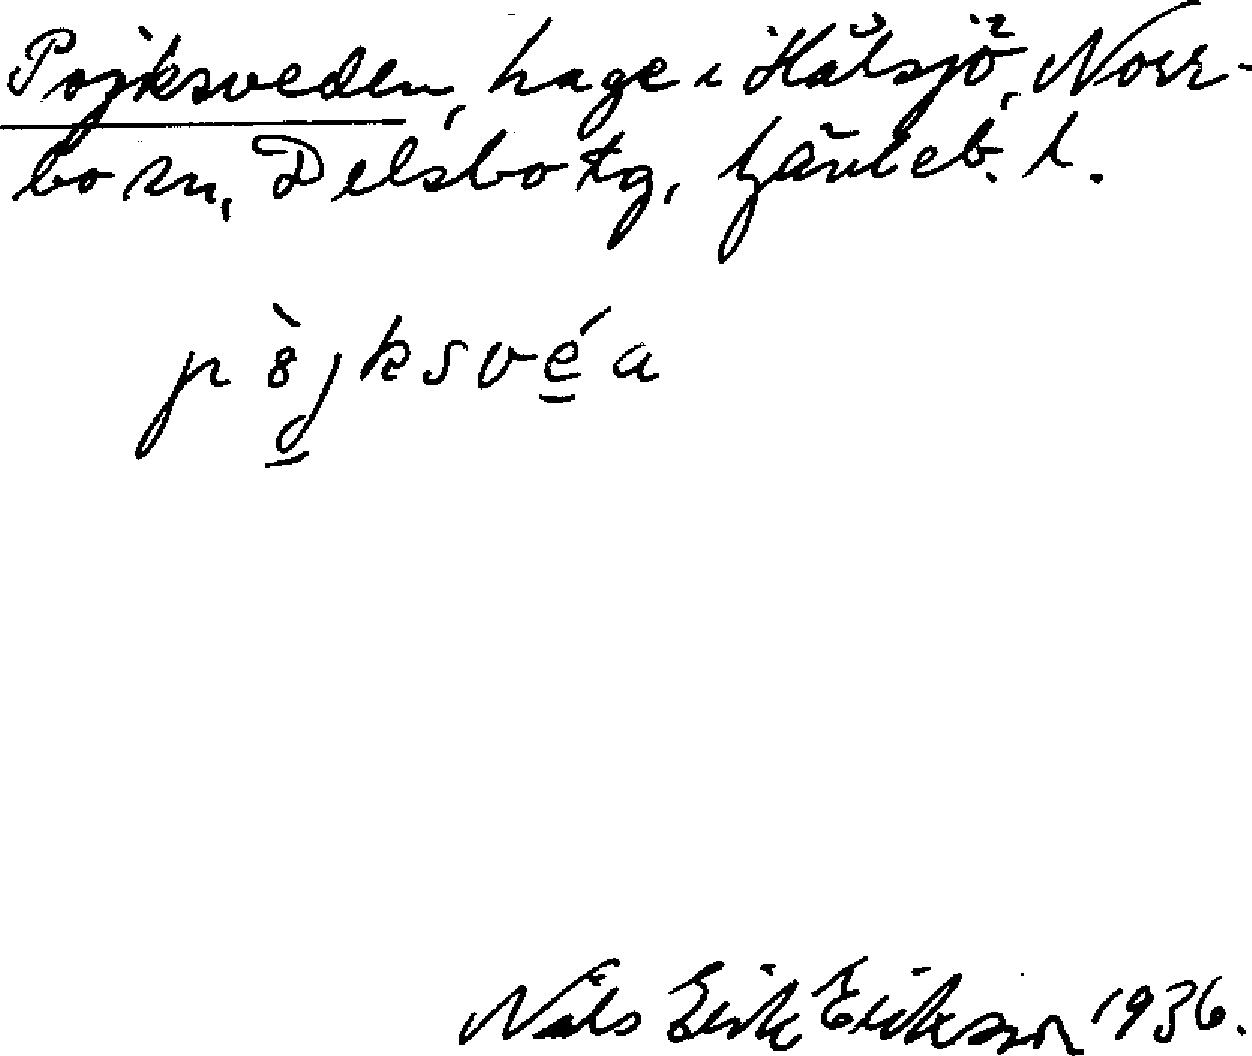 Pojksveden, hage i Hålsjö, Norr-
bo sn, Delsbo tg, Gävleb. l.
pòjksvéa
Nils Erik Erikson 1936.